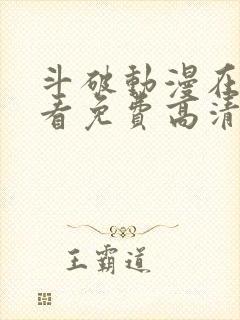 斗破動漫在
看免費高清
王霸道